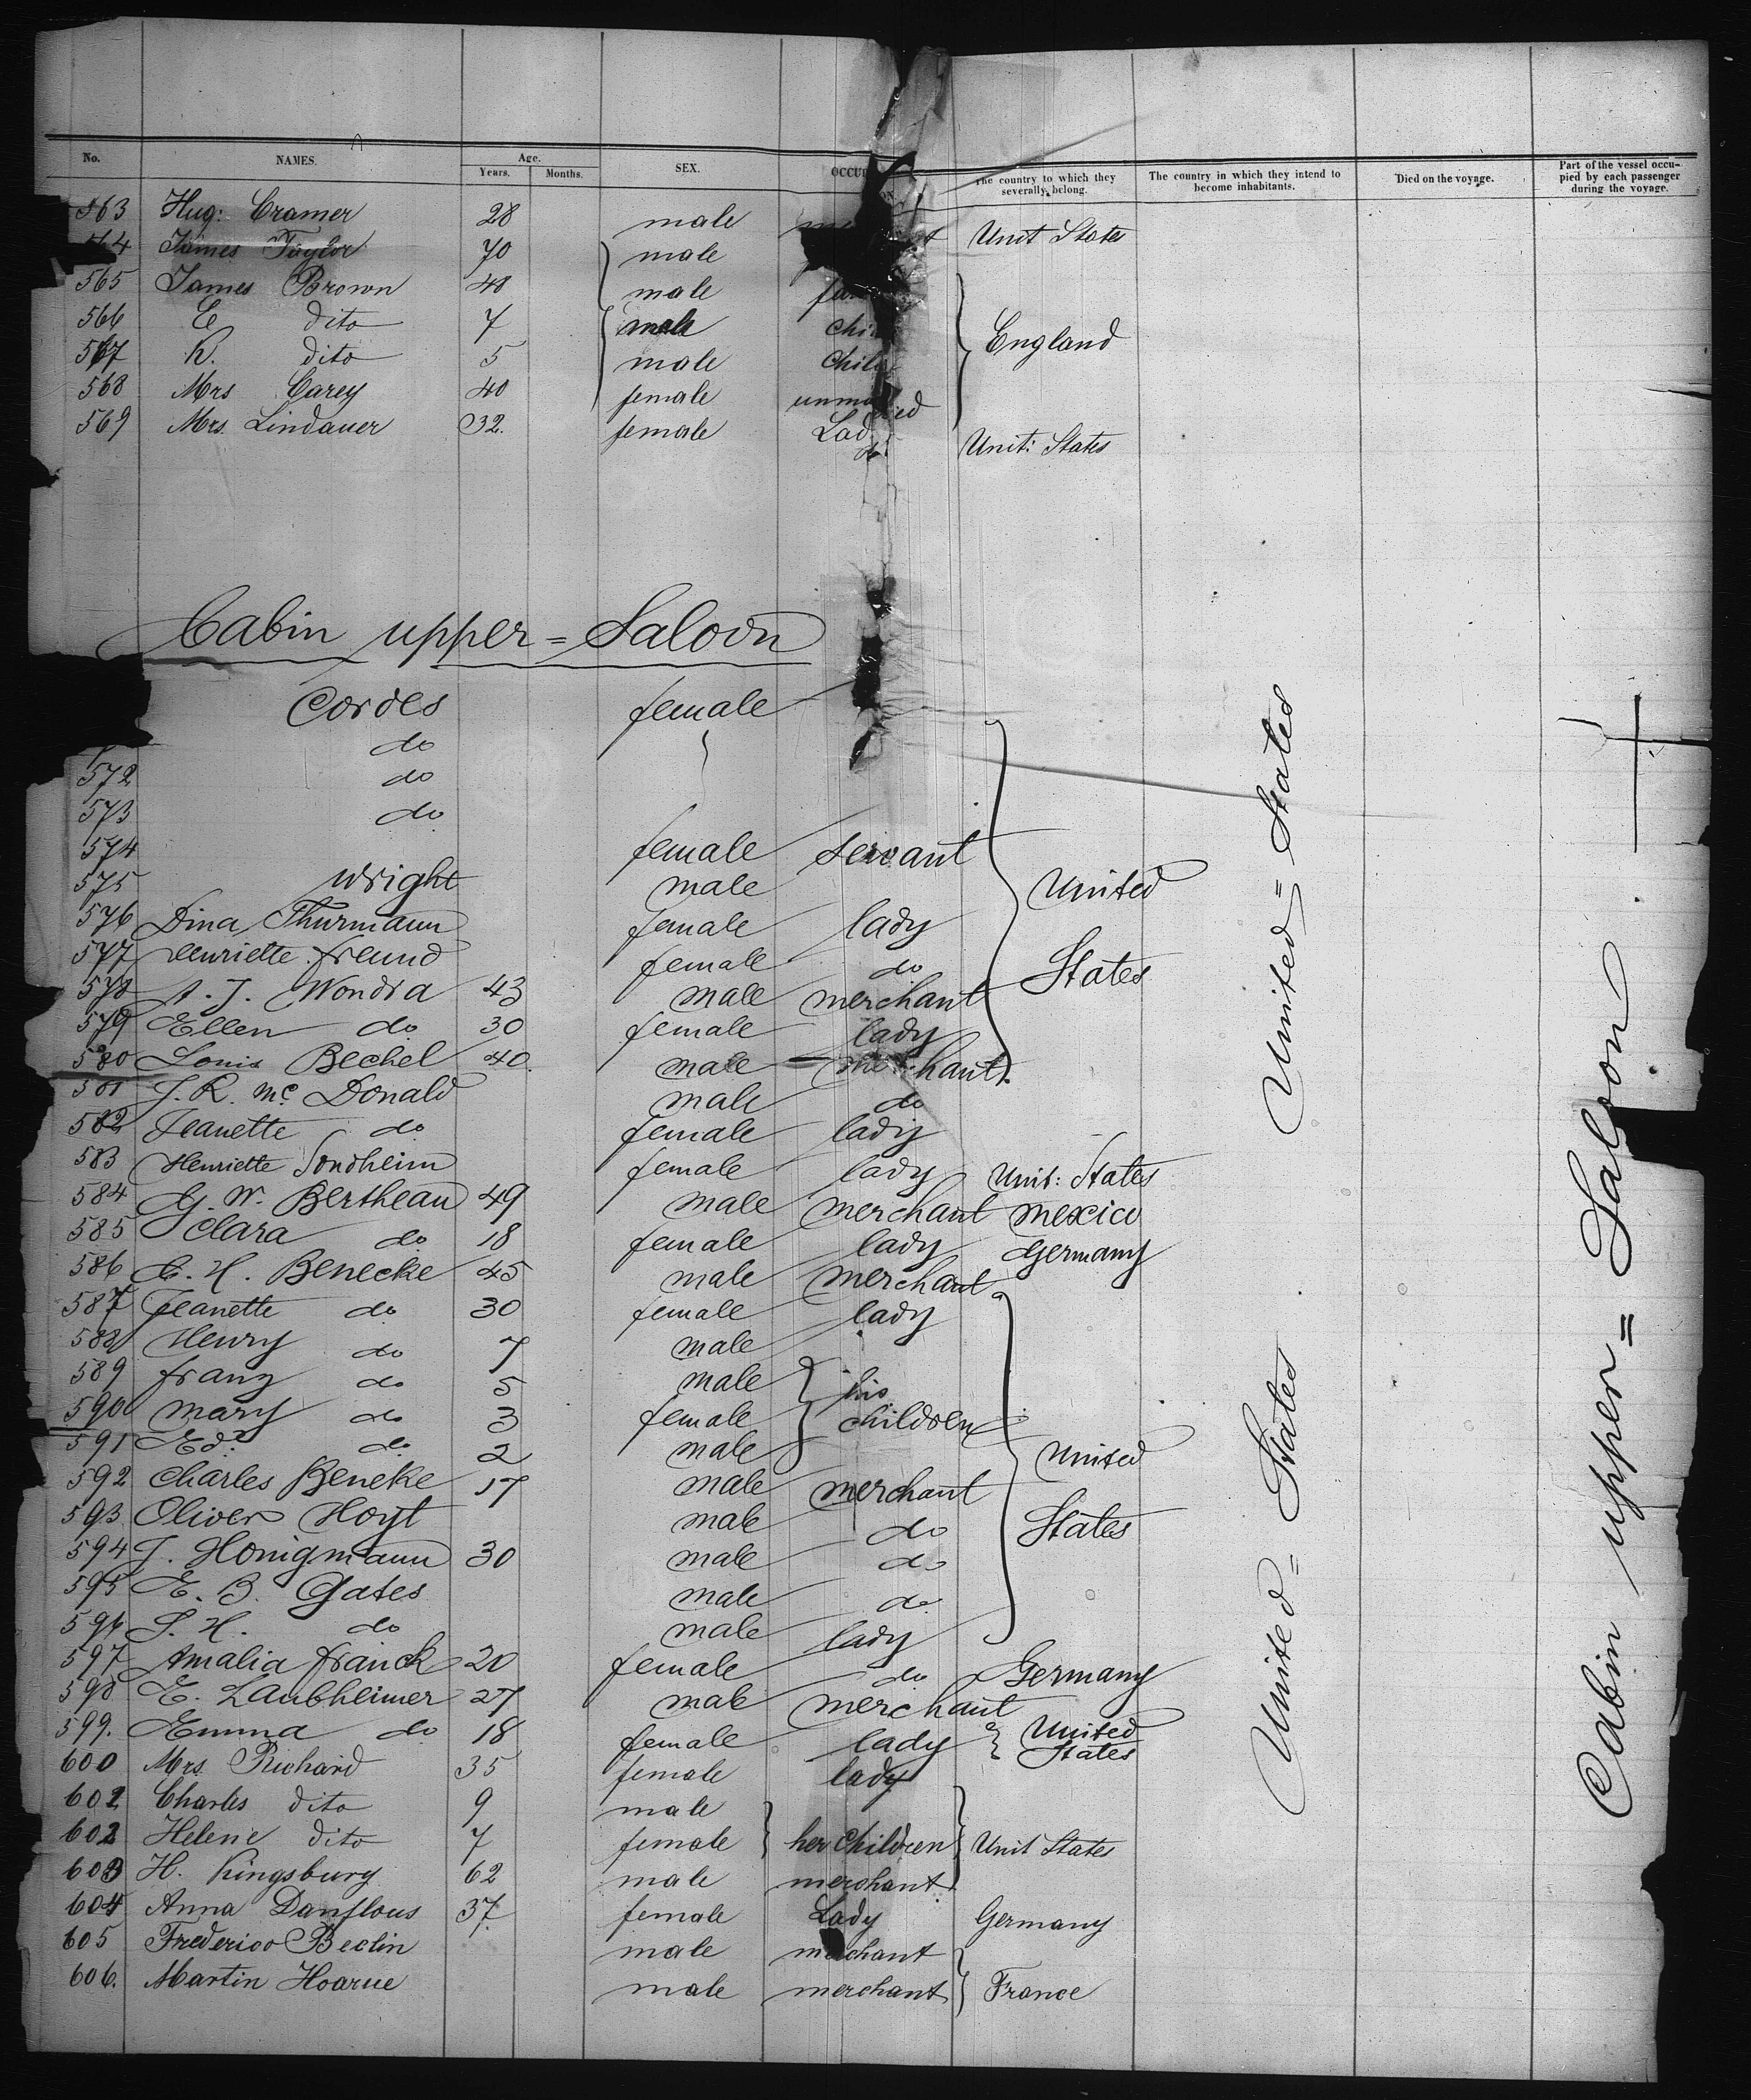 No. NAMES. Age. Years. Months. SEX. OCCUP The country to which they severally belong. The country in which they intend to become inhabitants. Died on the voyage. Part of the vessel occupied by each passenger during the voyage.
563 Hug: Cramer 28 male Unit States
64 James Taylor 70 male
565 James Brown 48 male
566 E dito 7 male chi
567 K. dito 5 male Child
568 Mrs Carey 40 female unmarried
569 Mrs. Lindauer 32. female Lad
do
England
Unit: States
Cabin upper = Saloon
Cordes female
do
572 do
573 do
574 female servant
575 Wright male
576 Dina Thurmann female lady
577 Henriette Freund female do
578 A. J. Wondra 43 male merchant
579 Ellen do 30 female lady
580 Louis Bechel 40. male merchant
United
States
581 J. R. Mc Donald male do
582 Jeanette do female lady
583 Henriette Sondheim female lady Unit: States
584 G. W. Bertheau 49 male merchant Mexico
585 Clara do 18 female lady Germany
586 C. H. Benecke 45 male merchant
587 Jeanette do 30 female lady
588 Henry do 7 male
589 Franz do 5 male his
590 Mary do 3 female children
591 Ed. do 2 male
592 Charles Beneke 17 male merchant
593 Oliver Hoyt male do
594 J. Honigmann 30 male do
595 E. B. Gates male do
596 S. H. do male lady
United
States
597 Amalia Franck 20 female do Germany
598 E. Laubheimer 27 male merchant
599. Emma do 18 female lady United
States
600 Mrs. Richard 35 female lady
601 Charles dito 9 male
602 Helene dito 7 female her Children Unit States
603 H. Kingsbury 62 male merchant
604 Anna Danflous 37. female Lady Germany
605 Frederico Beclin male merchant
606. Martin Hoarue male merchant France
United = States
United = States
Cabin upper = Saloon